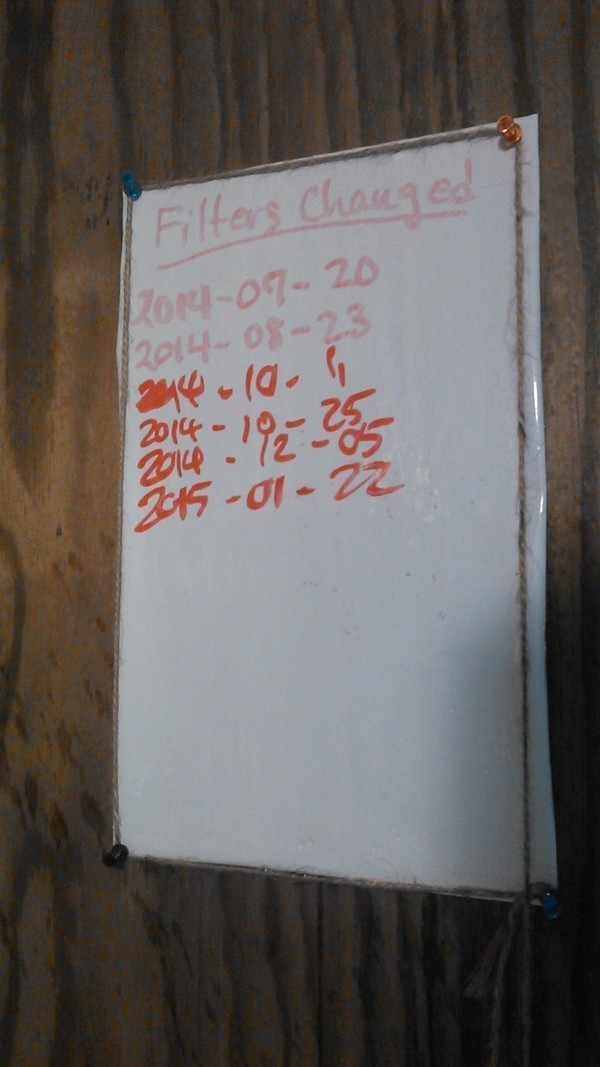 Filters Changed
2014-07-20
2014-08-23
2014-10-
2014-10-25
2014-12-05
2015-01-22